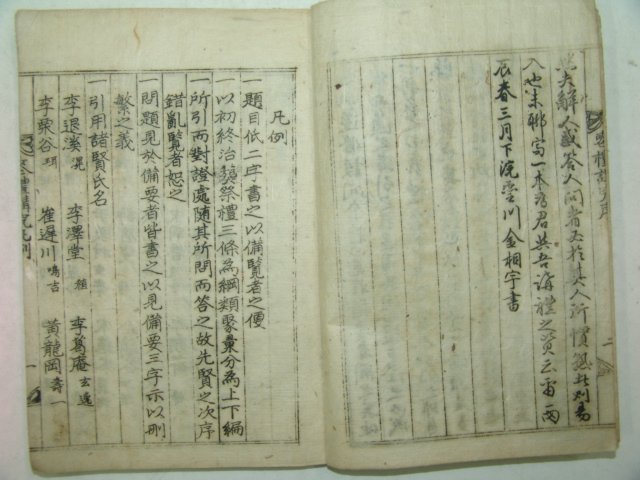 與夫解人惑答人問者又於其人所慣熟此則易
入也末聊寫一本爲君與吾講禮之資云爾丙
辰春三月下浣蛩川金相宇書
凡例
一題目低二字書之以備覽者之便
一以初終治喪祭禮三條爲綱類聚彙分爲上下編
一所引而對證處隨其所問而答之故先賢之次序
錯亂覽者恕之
一問題見於備要者皆書之以見備要三字示以刪
繁之義
一引用諸賢氏名
李退溪滉 李澤堂植 李葛庵玄逸
李栗谷珥 崔遲川鳴吉 黃龍岡壽一